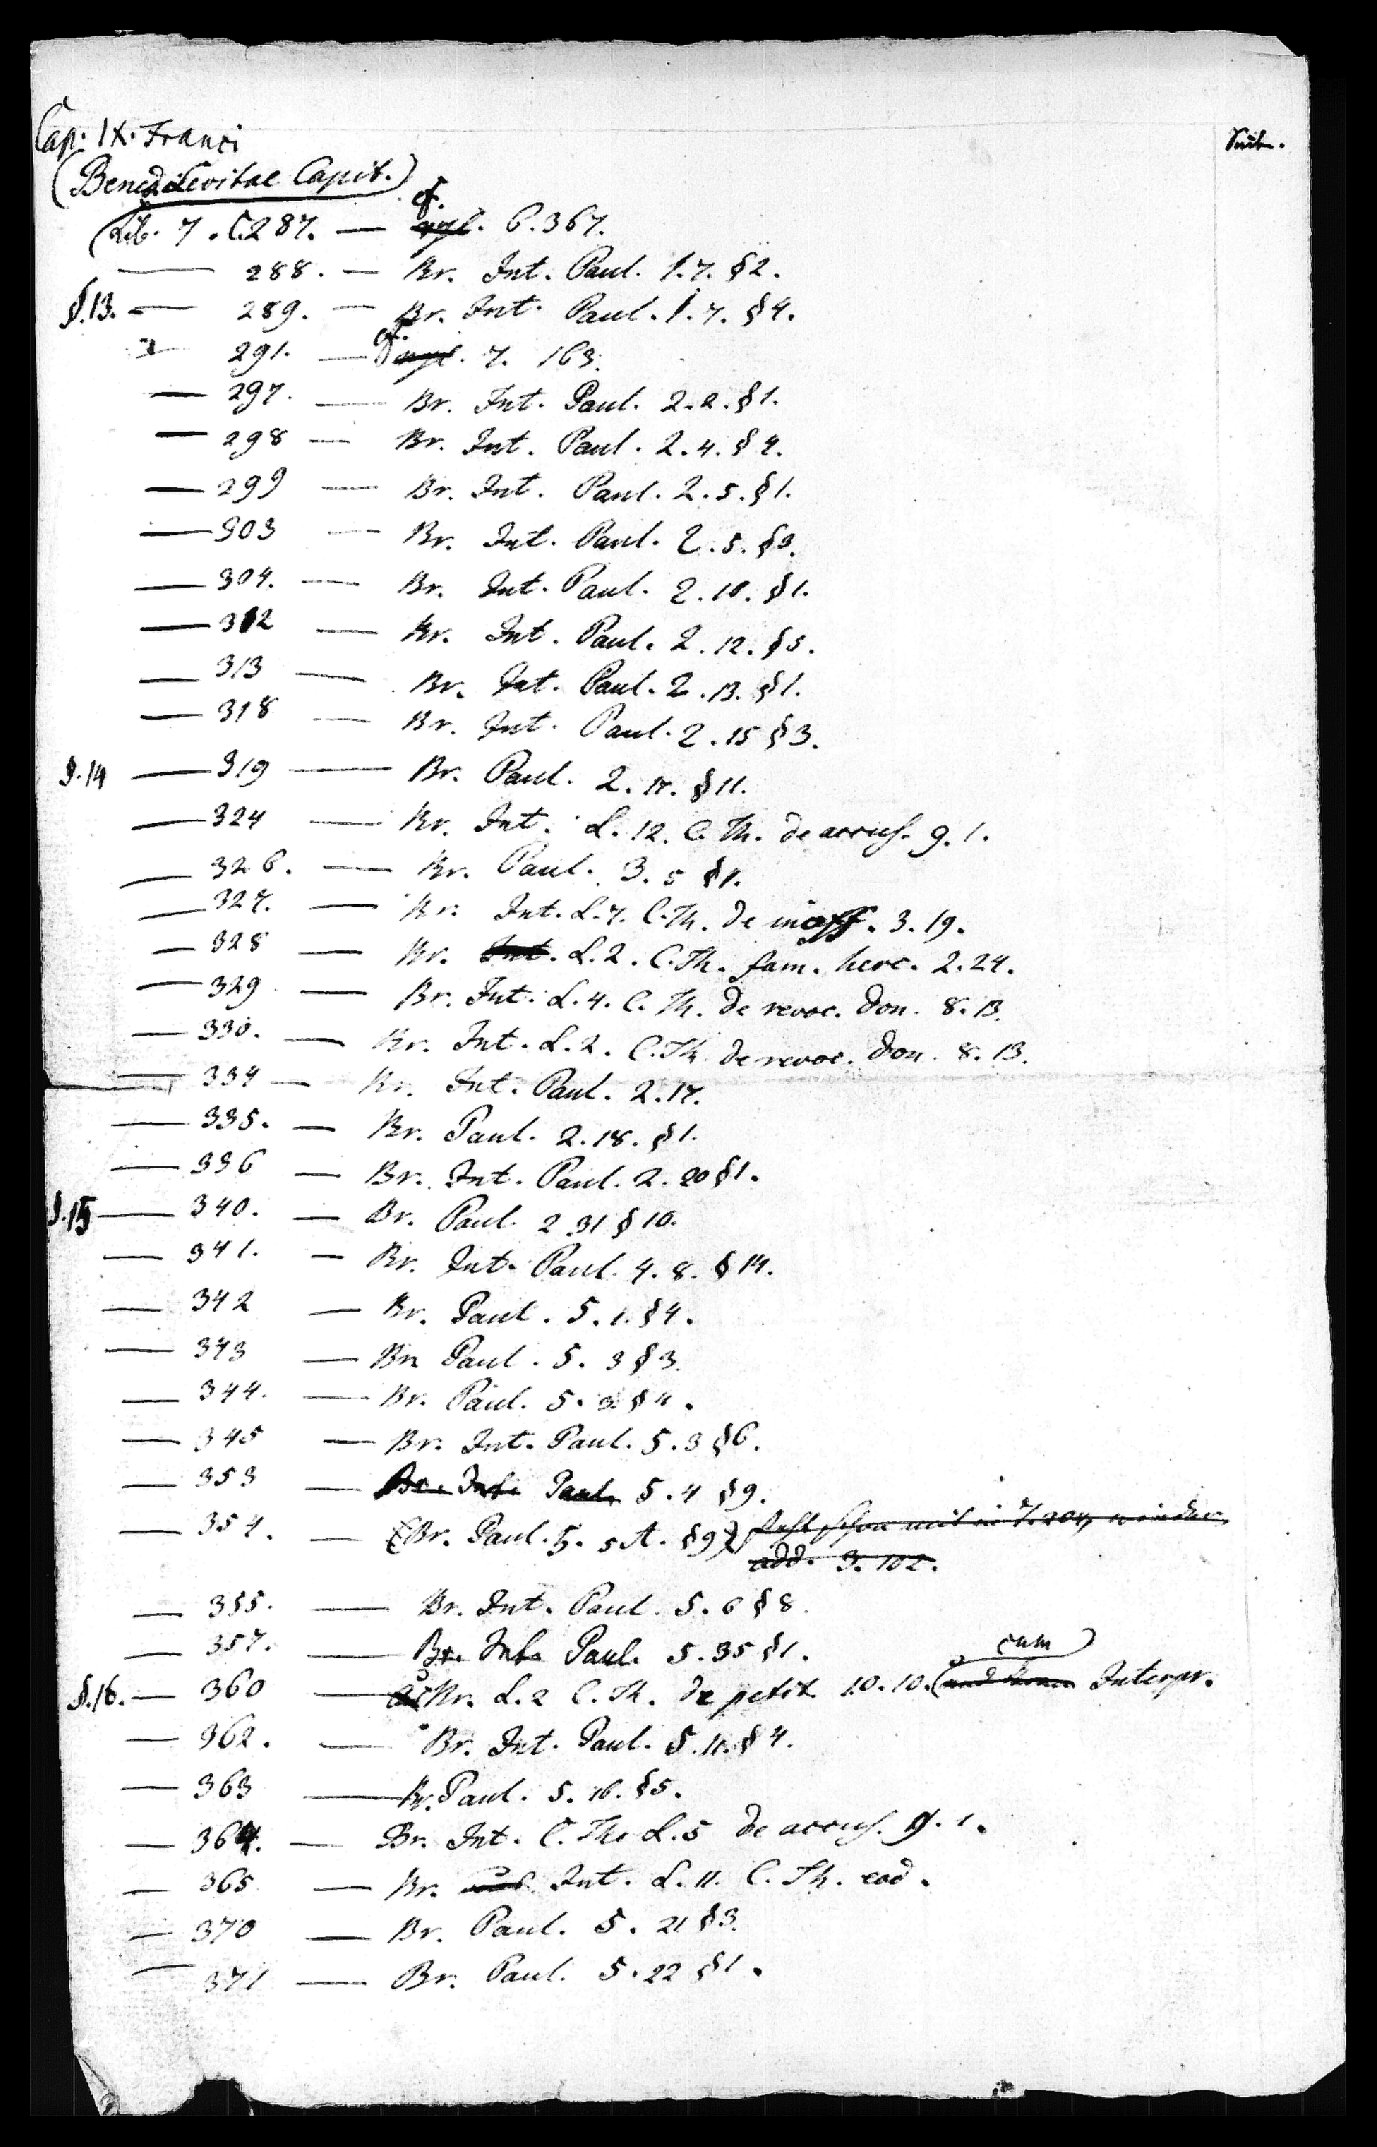 Cap. IX. Franci
(Bened. Levitae Capit.)
Lib. 7. c. 287. — cf. vgl. 6. 367.
— 288. — Br. Int. Paul. 1. 7. §2.
§.13. — 289. — Br. Int. Paul. 1. 7. §4.
— 291. — cf. vgl. 7. 163.
— 297. — Br. Int. Paul. 2. 2. §1.
— 298 — Br. Int. Paul. 2. 4. §4.
— 299 — Br. Int. Paul. 2. 5. §1.
— 303 — Br. Int. Paul. 2. 5. §3.
— 304. — Br. Int. Paul. 2. 10. §1.
— 312 — Br. Int. Paul. 2. 12. §5.
— 313 — Br. Int. Paul. 2. 13. §1.
— 318 — Br. Int. Paul. 2. 15 §3.
§.14 — 319 — Br. Paul. 2. 17. §11.
— 324 — Br. Int. L. 12. C. Th. de accus. 9. 1.
— 326. — Br. Paul. 3. 5 §1.
— 327. — Br. Int. L. 7. C. Th. de inoff. 3. 19.
— 328 — Br. Int. L. 2. C. Th. fam. herc. 2. 24.
— 329 — Br. Int. L. 4. C. Th. de revoc. don. 8. 13.
— 330. — Br. Int. L. 2. C. Th. de revoc. don. 8. 13.
— 334 — Br. Int. Paul. 2. 17.
— 335. — Br. Paul. 2. 18. §1.
— 336 — Br. Int. Paul. 2. 20 §1.
§.15 — 340. — Br. Paul. 2 31 §10.
— 341. — Br. Int. Paul. 4. 8. §14.
— 342 — Br. Paul. 5. 1. §4.
— 343 — Br. Paul. 5. 3 §3.
— 344. — Br. Paul. 5. 3. §4.
— 345 — Br. Int. Paul. 5. 3 §6.
— 353 — Br. Int. Paul. 5. 4 §9.
— 354. — (Br. Paul. 5. 5 A. §9)
add. 3. 102.
— 355. — Br. Int. Paul. 5. 6 §8.
— 357. — Br. Int. Paul. 5. 35 §1.
cum
§.16. — 360 — Br. L. 2 C. Th. de petit. 10. 10. Interpr.
— 362. — Br. Int. Paul. 5. 11. §4.
— 363 — Br. Paul. 5. 16. §5.
— 364. — Br. Int. C. Th. L. 5 de accus. 9. 1.
— 365 — Br. Int. L. 11. C. Th. eod.
— 370 — Br. Paul. 5. 21 §3.
— 371 — Br. Paul. 5. 22 §1.